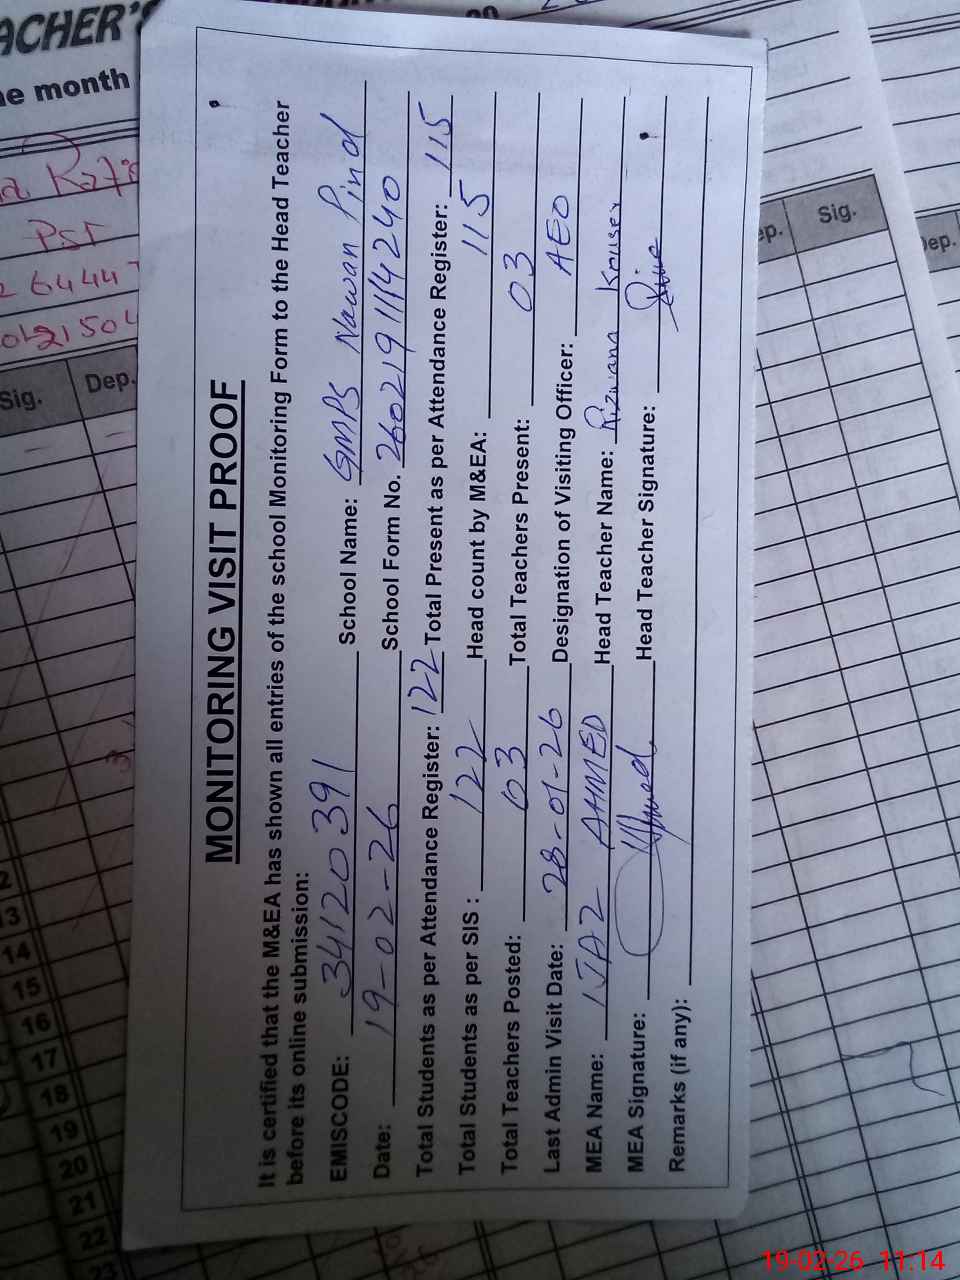 MONITORING VISIT PROOF
It is certified that the M&EA has shown all entries of the school Monitoring Form to the Head Teacher
before its online submission:
EMISCODE: 34120391 School Name: GMPS Nawan Pind
Date: 19-02-26 School Form No. 26021911114240
Total Students as per Attendance Register: 122 Total Present as per Attendance Register: 115
Total Students as per SIS : 122 Head count by M&EA: 115
Total Teachers Posted: 03 Total Teachers Present: 03
Last Admin Visit Date: 28-01-26 Designation of Visiting Officer: AEO
MEA Name: IJAZ AHMED Head Teacher Name: Rizwana Kouser
MEA Signature: Ahmed Head Teacher Signature:
Remarks (if any):
ACHER'S
he month
PST
Sig. Dep.
Sig.
ep.
Dep.
12
13
14
15
16
17
18
19
20
21
22
23
19-02-26 11:14